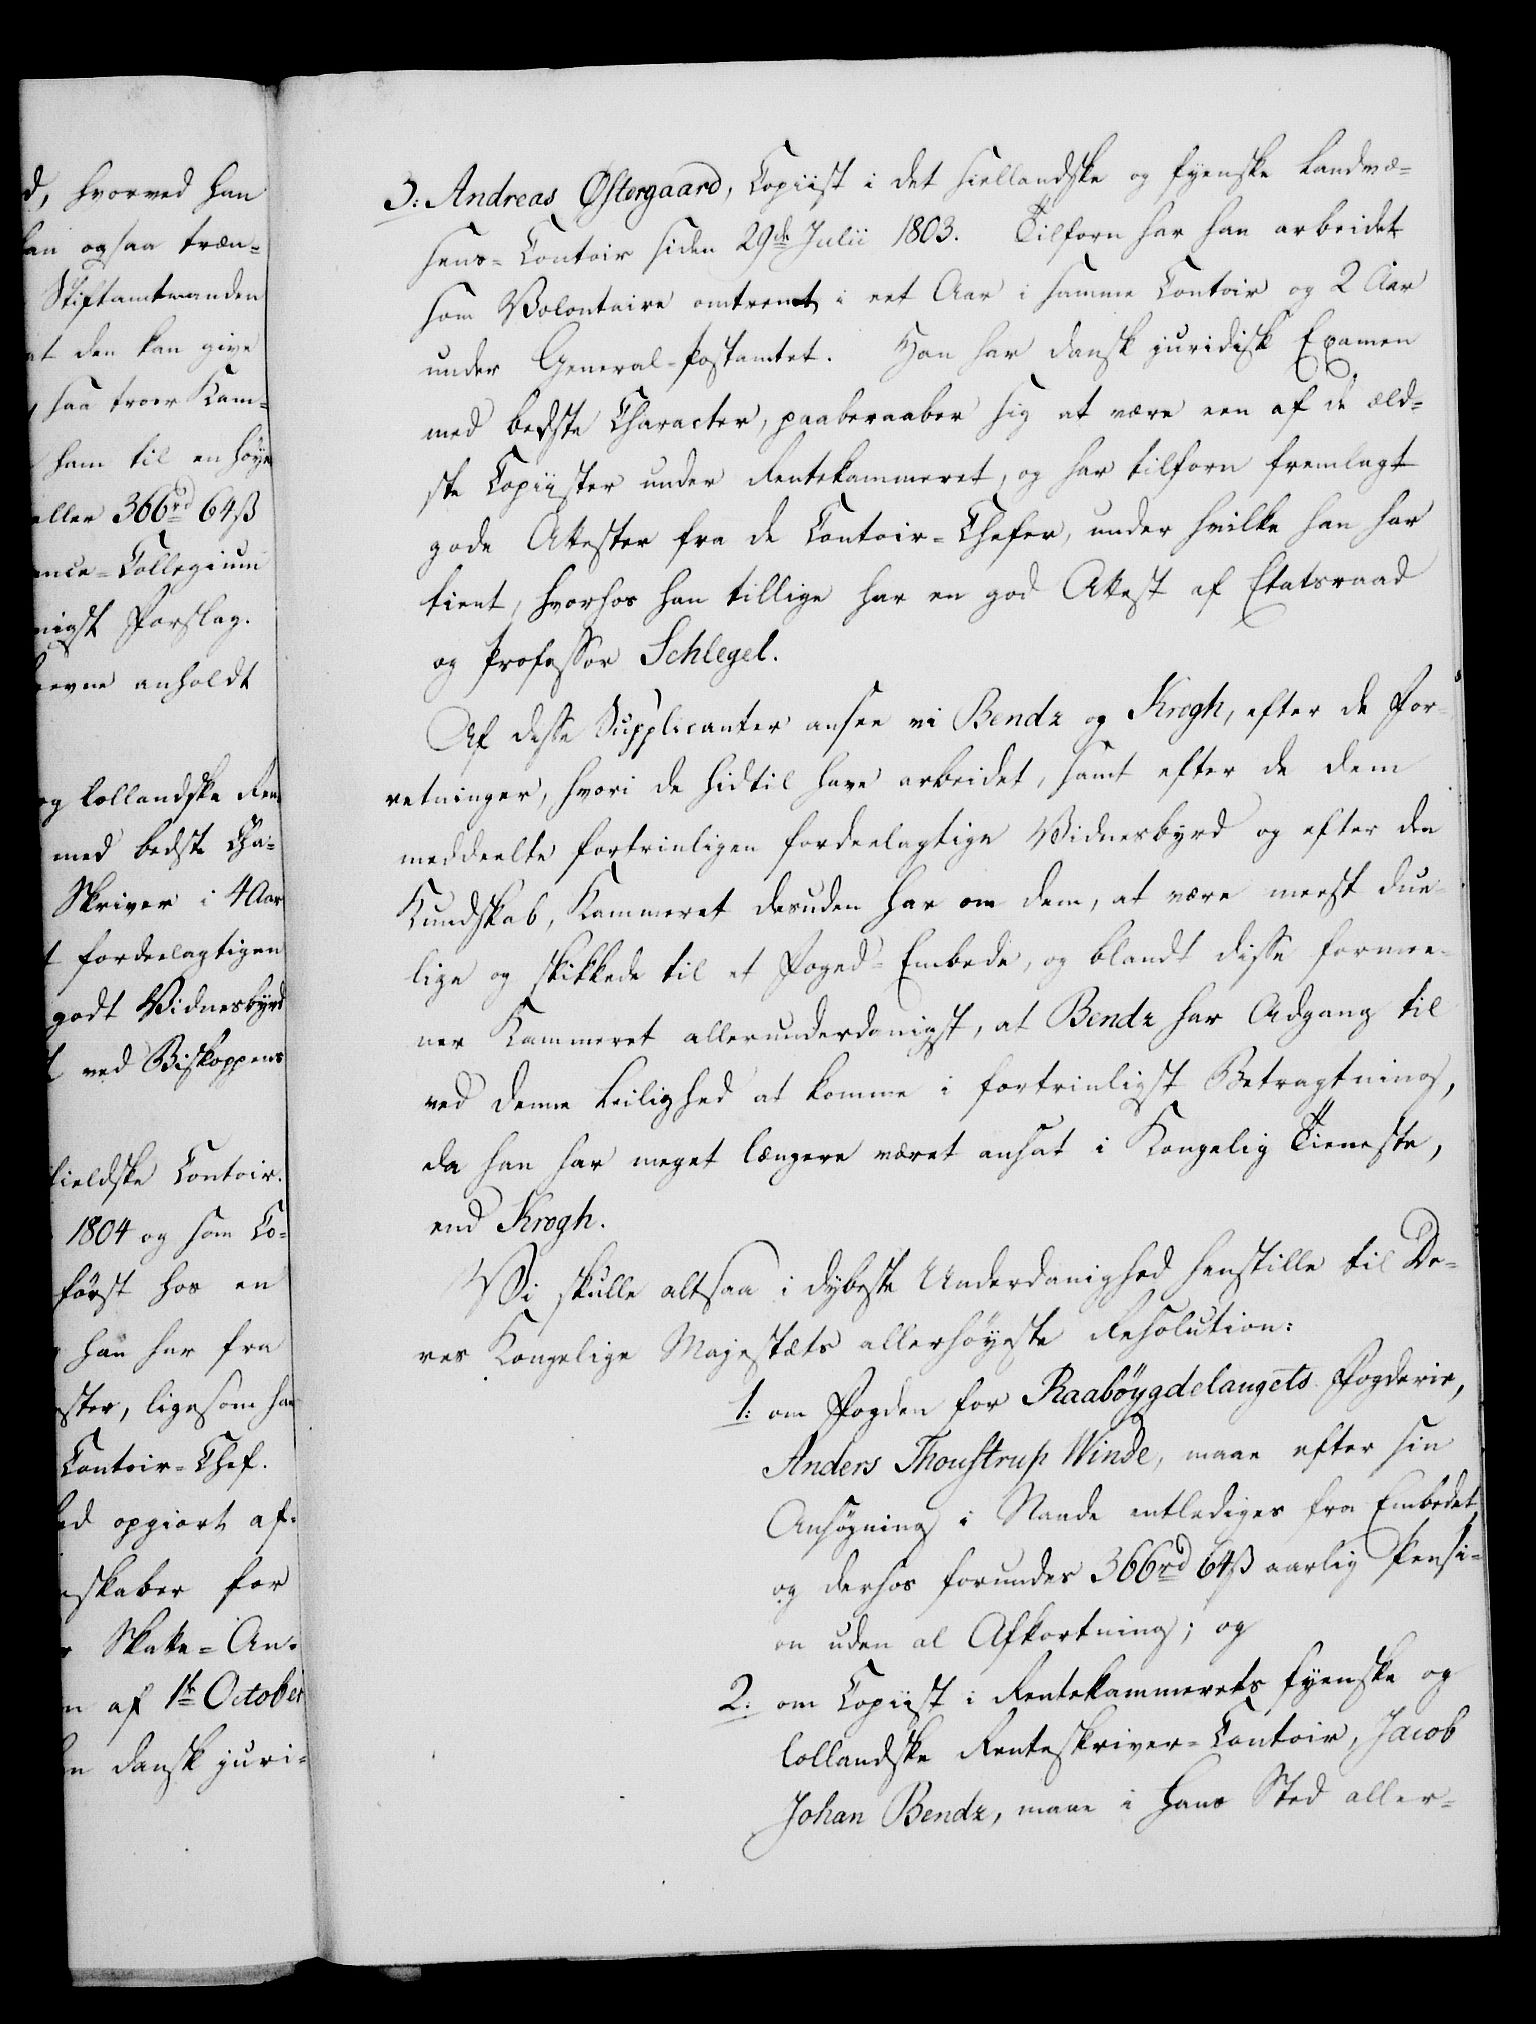 d, hvorved han
han ogsaa træn-
Stiftamtmanden
at den kan give
saa troer Kam-
ham til en höye
eller 366rd 64ß
ance-Collegium
nigst Forslag.
hevne anholdt
og lollandske Ren
med bedste Cha-
Skriver i 4 Aar
t fordeelagtigen
godt Vidnesbyrd
t ved Biskoppens
fieldske Contoir.
1804 og som Co-
först hos en
han har fra
ster, ligesom han
Contoir-Chef.
hed opgiort af-
nskaber for
r Skatte-An-
n af 1ste October
en dansk juri-
3: Andreas Østergaard, Copiist i det siellandske og fyenske Landvæ-
sens-Contoir siden 29de Julii 1803. Tilforn har han arbeidet
som Volontaire omtrent i eet Aar i samme Contoir og 2 Aar
under General-Postamtet. Han har dansk juridisk Examen
med bedste Character, paaberaaber sig at være een af de æld-
ste Copiister under Rentekammeret, og har tilforn fremlagt
gode Attester fra de Contoir-Chefer, under hvilke han har
tient, hvorhos han tillige har en god Attest af Etatsraad
og Professor Schlegel.
Af disse Supplicanter ansee vi Bendz og Krogh, efter de For-
retninger, hvori de hidtil have arbeidet, samt efter de dem
meddeelte fortrinligen fordeelagtige Vidnesbyrd og efter den
Kundskab, Kammeret desuden har om dem, at være meest due-
lige og skikkede til et Foged-Embede, og blandt disse formee-
ner Kammeret allerunderdanigst, at Bendz har Adgang til
ved denne Leilighed at komme i fortrinligst Betragtning,
da han har meget længere været ansat i Kongelig Tieneste,
end Krogh.
Vi skulle altsaa i dybeste Underdanighed henstille til De-
res Kongelige Majestæts allerhöyeste Resolution:
1: om Fogden for Raaböygdelaugets Fogderie,
Anders Thoustrup Winde, maae efter sin
Ansögning i Naade entlediges fra Embedet,
og derhos forundes 366rd 64ß aarlig Pensi-
on uden al Afkortning; og
2: om Copiist i Rentekammerets fyenske og
lollandske Renteskriver-Contoir, Jacob
Johan Bendz, maae i hans Sted aller-